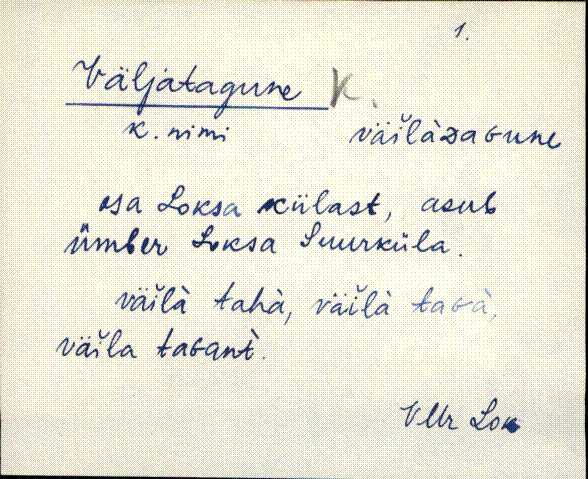 1.
Väljatagune K.
k. nimi väĭlàᴢaɢune
osa Loksa külast, asub
ümber Loksa Suurküla.
väĭlà tahà, väĭlà taɢà,
väĭla taɢant̀.
VMr Lok